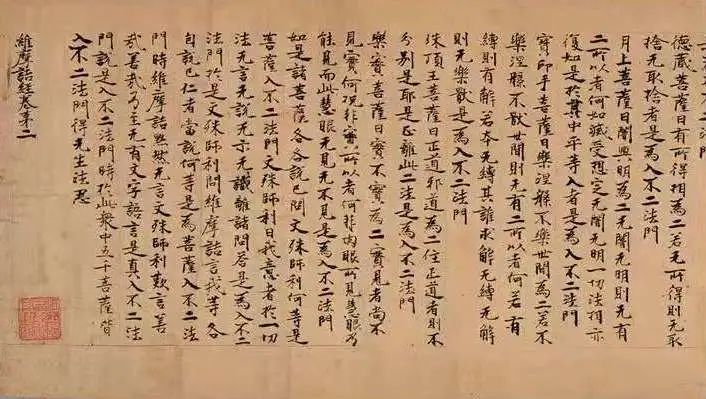 德藏菩薩曰有所得相為二若无所得則无取
捨无取捨者是為入不二法門
月上菩薩曰闇與明為二无闇无明則无有
二所以者何如滅受想定无闇无明一切法相亦
復如是於其中平等入者是為入不二法門
寶印手菩薩曰樂涅槃不樂世間為二若不
樂涅槃不猒世間則无有二所以者何若有
縛則有解若本无縛其誰求解无縛无解
則无樂猒是為入不二法門
珠頂王菩薩曰正道邪道為二住正道者則不
分別是邪是正離此二法是為入不二法門
樂實菩薩曰實不實為二實見者尚不
見實何況非實所以者何非肉眼所見慧眼乃
能見而此慧眼无見无不見是為入不二法門
如是諸菩薩各各說已問文殊師利何等是
菩薩入不二法門文殊師利曰我意者於一切
法无言无說无示无識離諸問荅是為入不二
法門於是文殊師利問維摩詰言我等各
自說已仁者當說何等是為菩薩入不二法
門時維摩詰默然无言文殊師利歎言善
哉善哉乃至无有文字語言是真入不二法
門說是入不二法門時於此眾中五千菩薩皆
入不二法門得无生法忍
維摩詰經卷第二